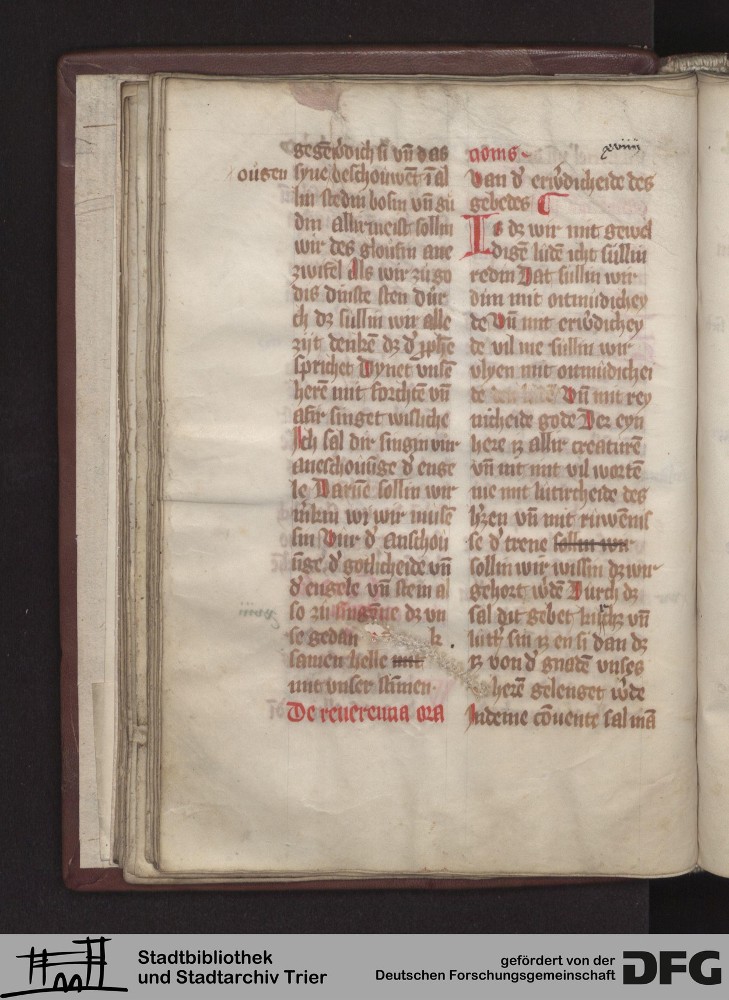 gegēwͦdich si vn̄ das
ougen
syne beschoiwēt ī al
lin stedin bosin vn̄ gů
din allirmeist sollin
wir des gloufin ane
zwifel Als wir zů go
dis dinste sten dur
ch dz sullin wir alle
zijt denken dz dʼ ꝓphē
sprichet Dynet vnsē
herē mit forchtē vn̄
afir singet wisliche
Ich sal dir singin vur
aneschouūge dʼ enge
le Darūē sollin wir
mīkin wj wir musē
sin Vur dʼ anschou
ūge dʼ gotlicheide vn̄
dʼ engele vn̄ stein al
so zů singēne dz vn
se gedan k
samen helle mit
mit vnser stīmen
De reuerentia ora
tionis
xviiij
Van dʼ erwʼdicheide des
gebedes
Is dz wir mit gewel
digē lůdē icht sullin
redin Dat sullin wir
dun mit oitmůdichey
de Vn̄ mit erwʼdichey
de vil me sullin wir
vlyen mit oitmůdichei
de Vn̄ mit rey
nicheide gode Der eyn
here is allir creaturē
vn̄ nit mit vil wortē
me mit lutircheide des
hʼzen vn̄ mit ruwēnis
se dʼ trene sollin wir
sollin wir wissin dz wir
gehort wʼdē Durch dz
sal dit gebet kusch vn̄
lutʼ sin is en si dan dz
is von dʼ gnadē vnses
herē gelenget wʼde
Indeme cōuente sal mā
Stadtbibliothek
und Stadtarchiv Trier
gefördert von der
Deutschen Forschungsgemeinschaft
DFG